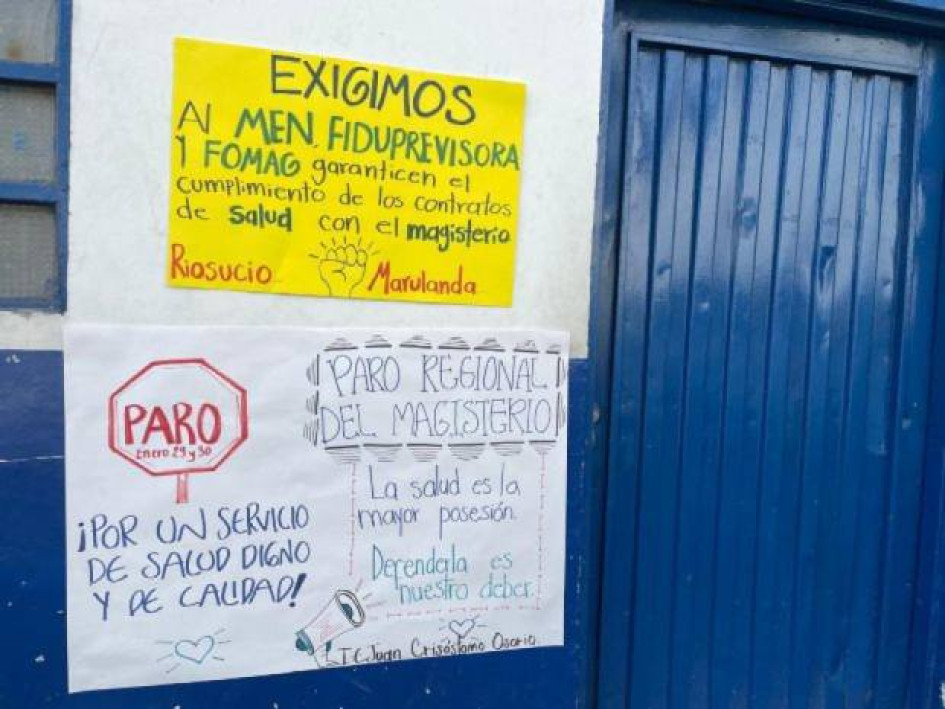 EXIGIMOS
Al MEN, FIDUPREVISORA
Y FOMAG garanticen el
cumplimiento de los contratos
de Salud con el magisterio
Riosucio Marulanda
PARO
Enero 29 y 30
¡POR UN SERVICIO
DE SALUD DIGNO
Y DE CALIDAD!
PARO REGIONAL
DEL MAGISTERIO
La salud es la
mayor posesión.
Defenderla es
nuestro deber.
I.E Juan Crisóstomo Osorio